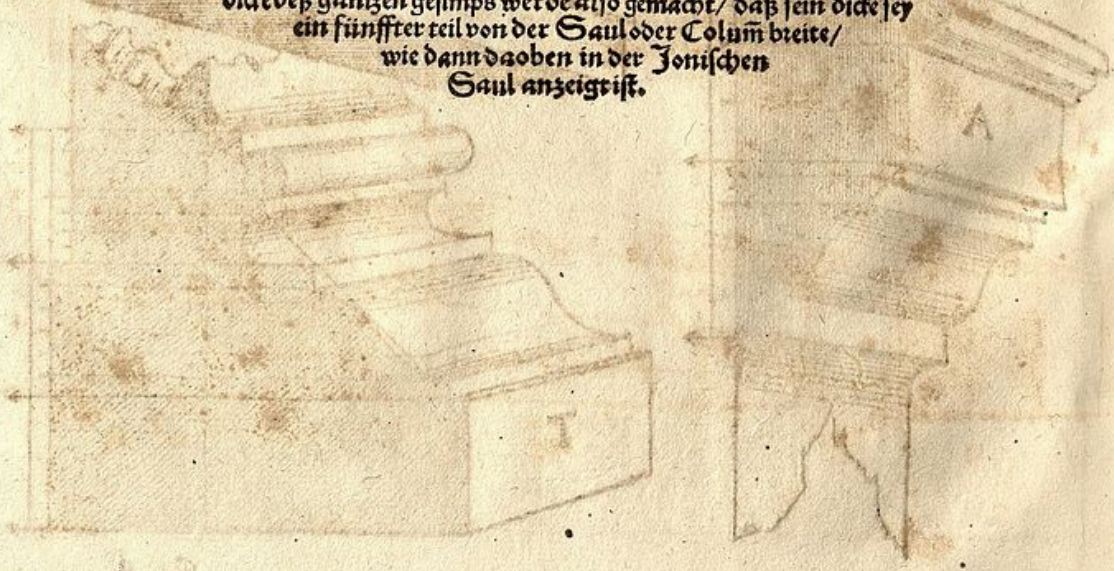 dicke deß gantzen gesimps werde also gemacht/ daß sein dicke sey
ein fünffter teil von der Saul oder Colum̃ breite/
wie dann daoben in der Jonischen
Saul anzeigt ist.
A
I